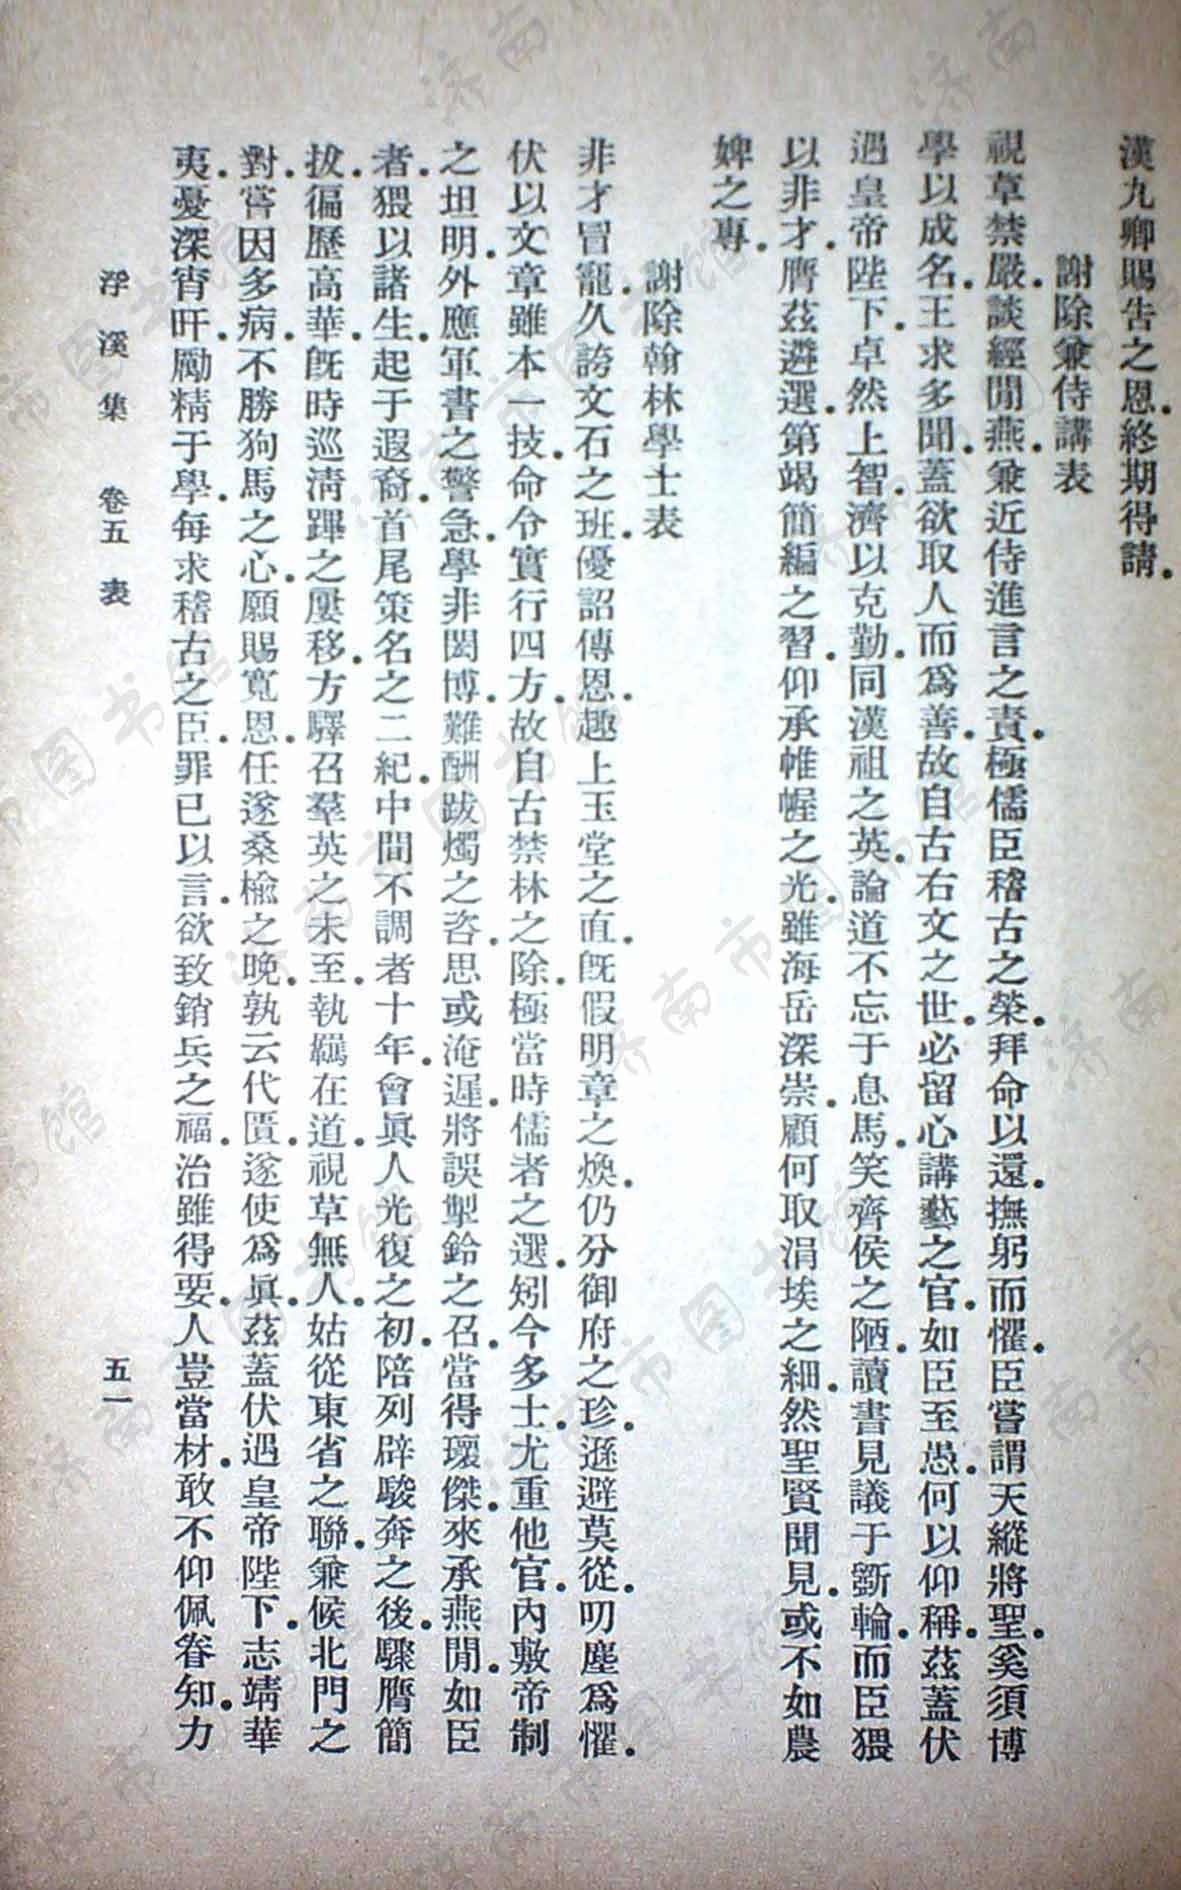 漢九卿賜告之恩.終期得請.
謝除兼侍講表
視草禁嚴.談經閒燕.兼近侍進言之責.極儒臣稽古之榮.拜命以還.撫躬而懼.臣嘗謂天縱將聖.奚須博
學以成名.王求多聞.蓋欲取人而爲善.故自古右文之世.必留心講藝之官.如臣至愚.何以仰稱.茲蓋伏
遇皇帝陛下.卓然上智.濟以克勤.同漢祖之英.論道不忘于息馬.笑齊侯之陋.讀書見議于斵輪.而臣猥
以非才.膺茲遴選.第竭簡編之習.仰承帷幄之光.雖海岳深崇.顧何取涓埃之細.然聖賢聞見.或不如農
婢之專.
謝除翰林學士表
非才冒寵.久誇文石之班.優詔傳恩.趣上玉堂之直.旣假明章之煥.仍分御府之珍.遜避莫從.叨塵爲懼.
伏以文章雖本一技.命令實行四方.故自古禁林之除.極當時儒者之選.矧今多士.尤重他官.內敷帝制
之坦明.外應軍書之警急.學非閎博.難酬跋燭之咨.思或淹遲.將誤掣鈴之召.當得瓌傑.來承燕閒.如臣
者.猥以諸生.起于遐裔.首尾策名之二紀.中間不調者十年.會眞人光復之初.陪列辟駿奔之後.驟膺簡
拔.徧歷高華.旣時巡淸蹕之屢移.方驛召羣英之未至.執羈在道.視草無人.姑從東省之聯.兼候北門之
對.嘗因多病.不勝狗馬之心.願賜寬恩.任遂桑楡之晚.孰云代匱.遂使爲眞.茲蓋伏遇皇帝陛下.志靖華
夷.憂深宵旰.勵精于學.每求稽古之臣.罪已以言.欲致銷兵之福.治雖得要.人豈當材.敢不仰佩眷知.力
浮溪集 卷五 表 五一
濟南市图书馆